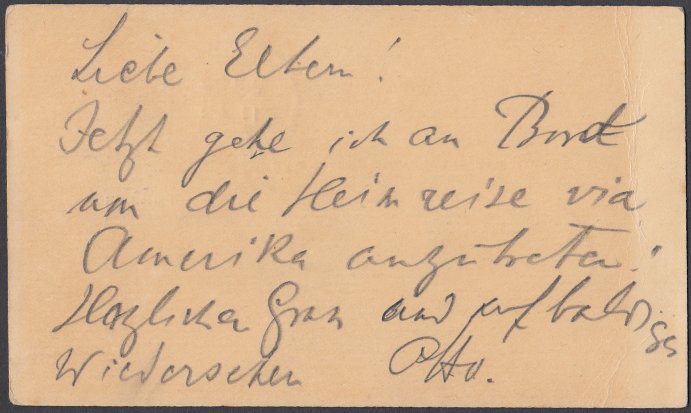 Liebe Eltern!
Jetzt gehe ich an Bord
um die Heimreise via
Amerika anzutreten!
Herzlichen Gruss und auf baldiges
Wiedersehen Otto.